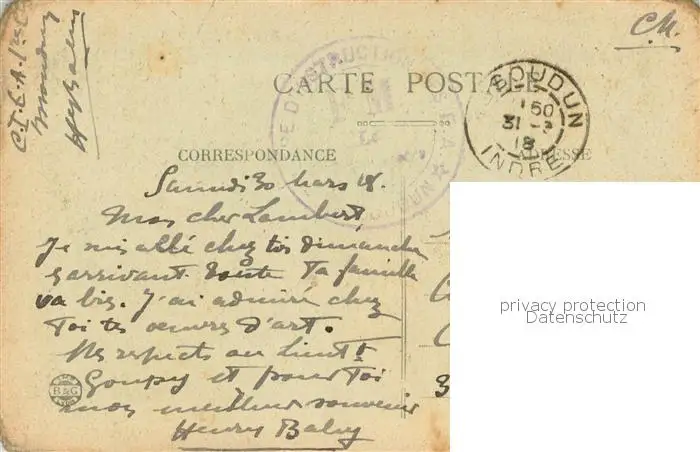 C.M.
CARTE POSTALE
CORRESPONDANCE
ADRESSE
ISSOUDUN
150
31 - 3
18
INDRE
Samedi 30 Mars 18.
Mon cher Lambert,
Je suis allé chez toi dimanche
en arrivant. Toute Ta famille
va bien. J'ai admiré chez
Toi tes oeuvres d'art.
Mes respects au Lieut t
Goupy et pour Toi
mon meilleur souvenir
Henry Baley
B&G
privacy protection
Datenschutz
C.I.E.A.